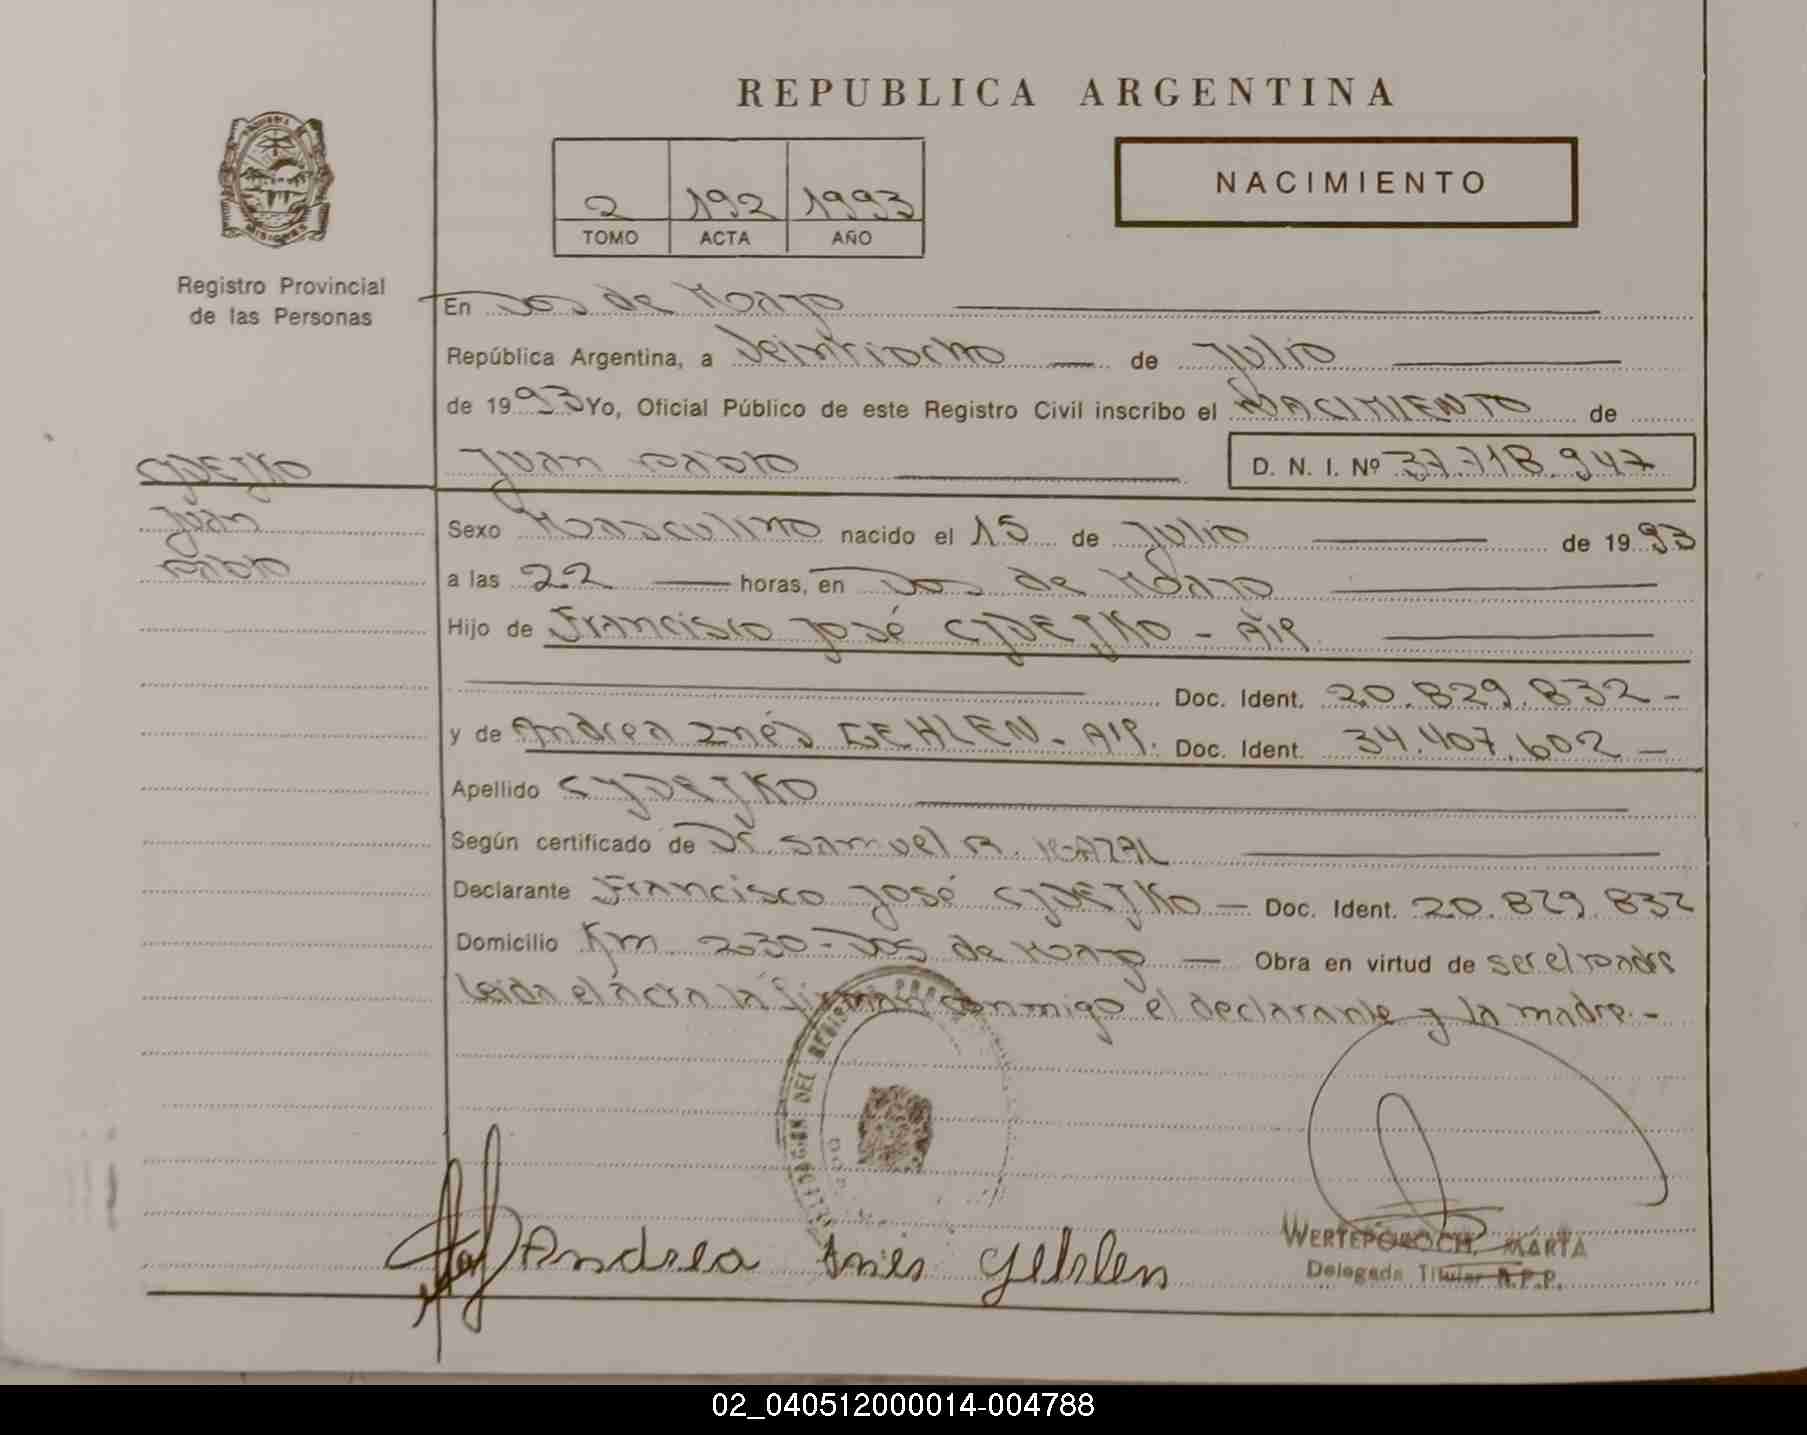 REPUBLICA ARGENTINA
NACIMIENTO
2 192 1993
TOMO ACTA AÑO
MISIONES
Registro Provincial
de las Personas
En Dos de Mayo
República Argentina, a Veintiocho de Julio
de 1993 Yo, Oficial Público de este Registro Civil inscribo el NACIMIENTO de
Juan Pablo D. N. I. Nº 37.718.947
CYDEJKO
Juan
Pablo
Sexo Masculino nacido el 15 de Julio de 1993
a las 22 horas, en Dos de Mayo
Hijo de Francisco José CYDEJKO - A/P.
Doc. Ident. 20.829.832 -
y de Andrea Inés GEHLEN - A/P. Doc. Ident. 34.407.602 -
Apellido CYDEJKO
Según certificado de Dr. Samuel R. KAZAL
Declarante Francisco José CYDEJKO - Doc. Ident. 20.829.832
Domicilio Km 230 - Dos de Mayo - Obra en virtud de ser el padre
Leida el acta la firman conmigo el declarante y la madre.-
Andrea Inés Gehlen
WERTEPOROCH, MARTA
Delegada Titular R.P.P.
02_040512000014-004788